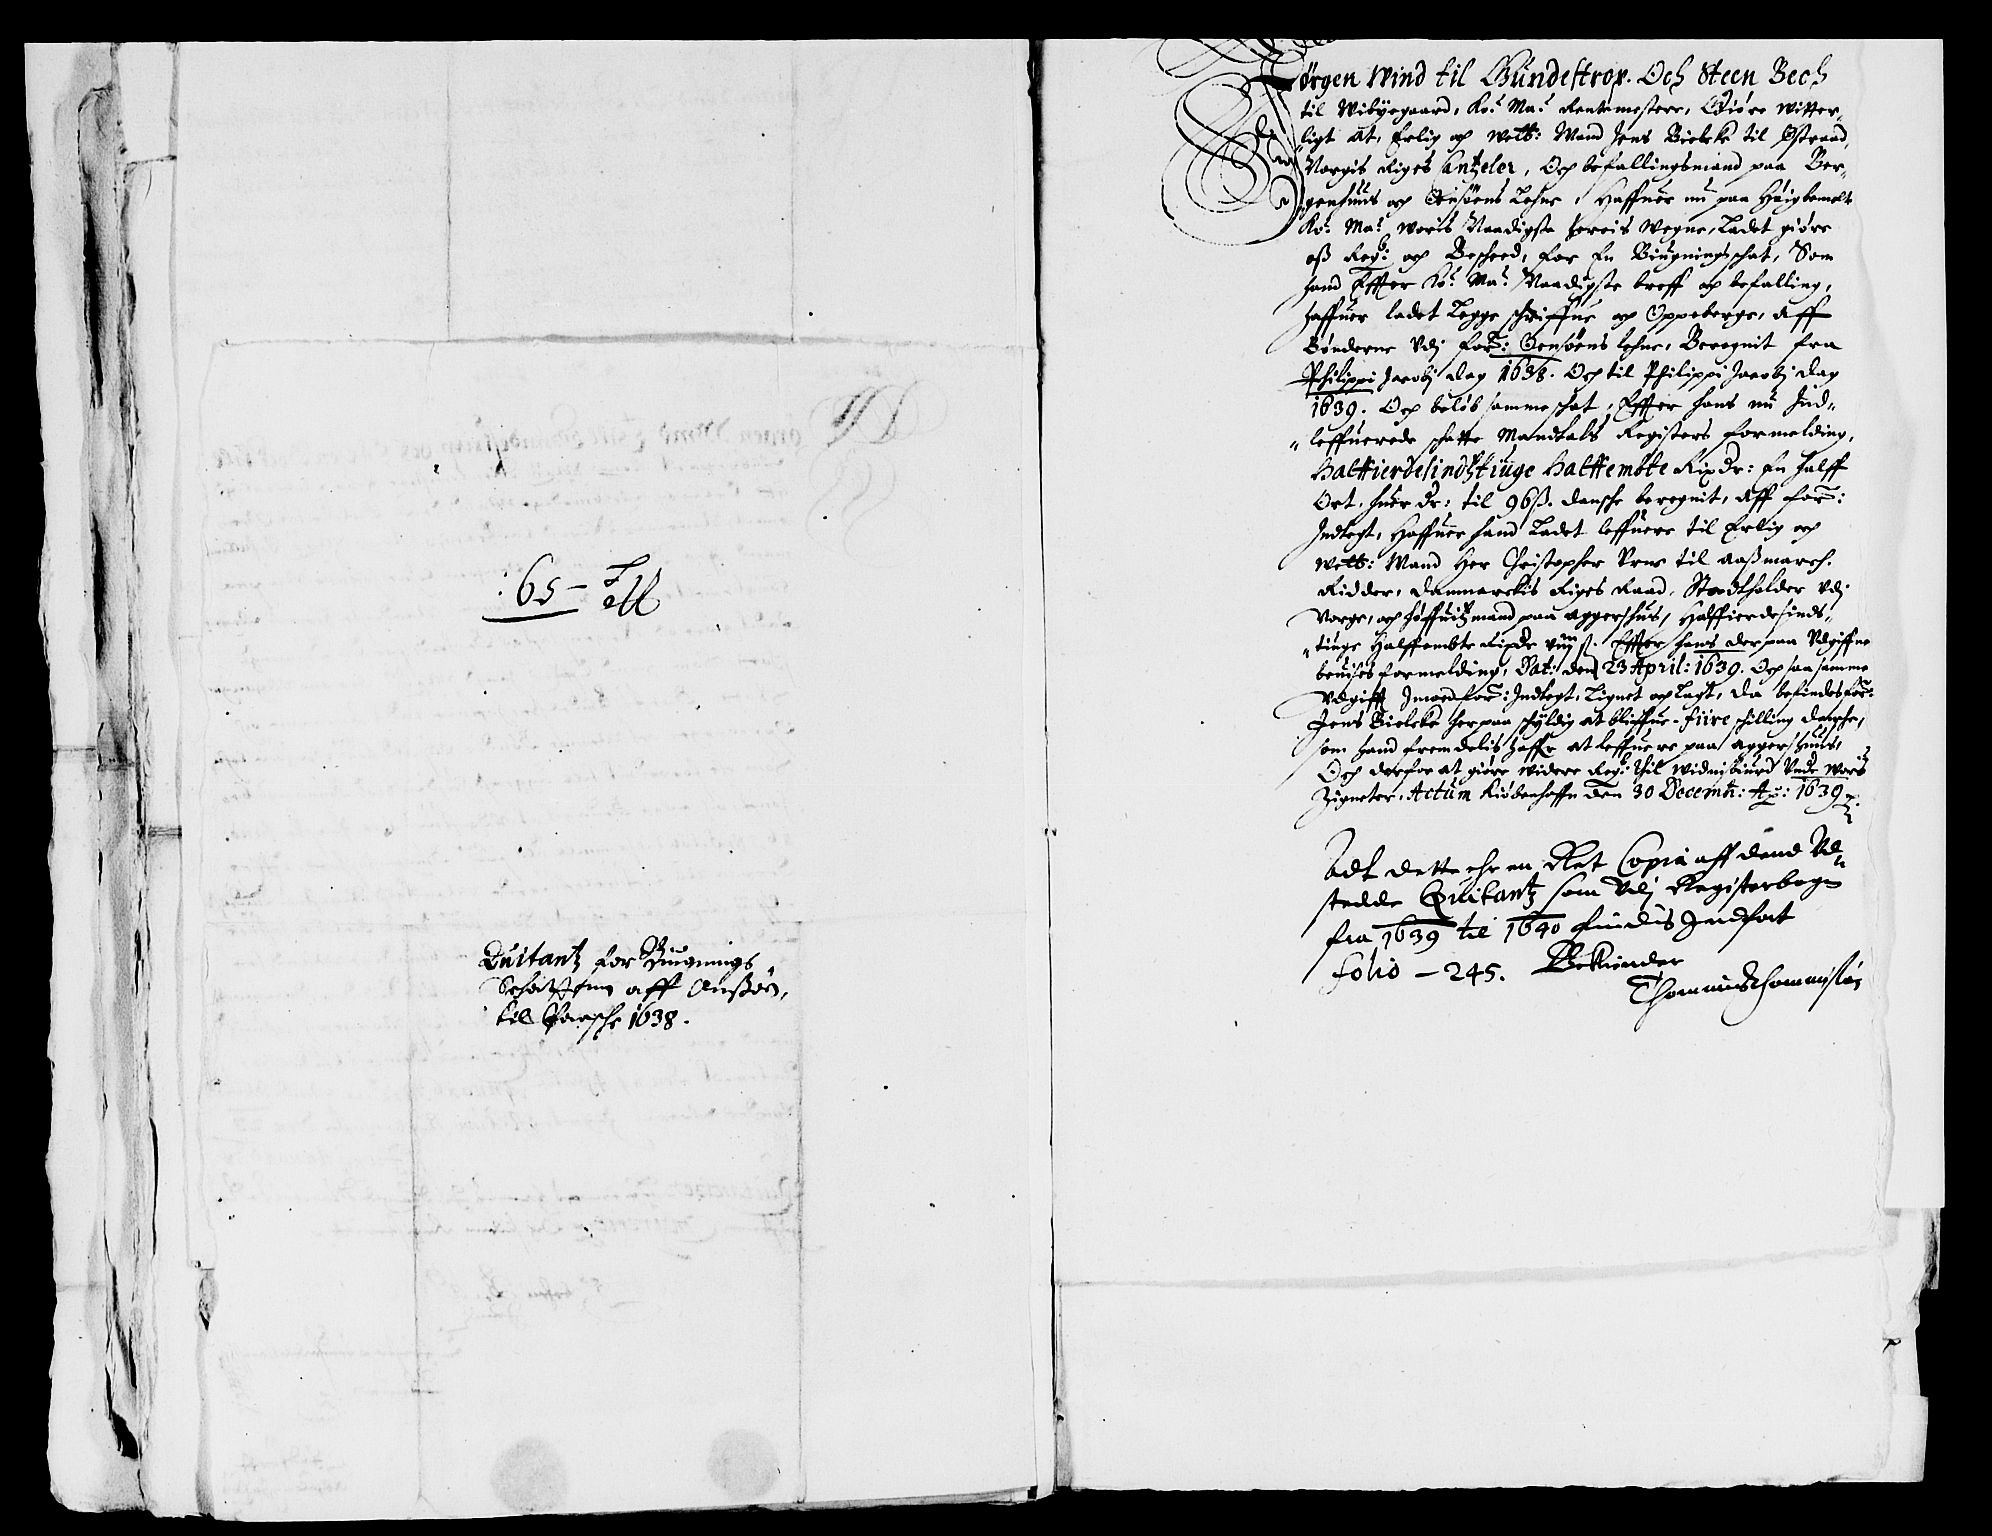 : 65 -
Quitantz for Biugnings
Schatten aff Onsøe,
til Paasche 1638.
Jørgen Wind til Gundestrop. Och Steen Bech
til Wibyegaard, Ko: Ma: Rentemestere, Giøre witter-
ligt at, Erlig och welb: Mand Jens Bielcke til Østraad,
Norgis Riges Cantzeler, Och befallingsmand paa Ber-
genhuus och Onsøens Lehne, Haffuer nu paa Høigbemelt
Ko: Ma: woris Naadigste Herris wegne, Ladet giøre
oss Reg: och Bescheed, for En Biugningschat, Som
hand Effter Ko: Ma: Naadigste breff och befalling,
haffuer ladet Legge schriffue och Oppeberge, Aff
Bønderne Vdj for: Onsøens lehne, Beregnit fra
Philippi Jacobj dag 1638. Och til Philippi Jacobj dag
1639. Och beløb samme schat, Effter hans nu Ind-
leffuerede schatte Mandtals Registers formelding,
Halffierdesindstiuge Halffembte Rixdr: En halff
Ort, huer dr: til 96 ß. dansche beregnit, Aff for:
Indtegt, Haffuer hand Ladet leffuere til Erlig och
welb: Mand Her Christopher Vrne til Aassmarch.
Ridder, Danmarckis Riges Raad, Stadtholder Vdj
Norge, och høffuitzmand paa Aggershus, Halffierdesinds-
tiuge Halffembte Rixdr viij ß. Effter hans der paa Vdgiffne
beuises formelding, Dat: den 23 April: 1639. Och saa samme
Vdgifft Imoed for: Indtegt, Lignet och Lagt, da befindes for:
Jens Bielcke herpaa schyldig at bliffue - fiire schilling dansche,
som hand fremdelis haffr at leffuere paa Aggershuus,
Och derfor at giøre widere Reg: Thil widnisbiurd Vnder wore
Zigneter, Actum Kiøbenhaffn den 30 Decemb: Ao: 1639.
Adt dette ehr en Ret Copia aff dend Vd-
stedde Quitantz som Vdj Registerbogen
fra 1639 til 1640 findis Indført
folio - 245. Bekiender
Thomas Thommissøn